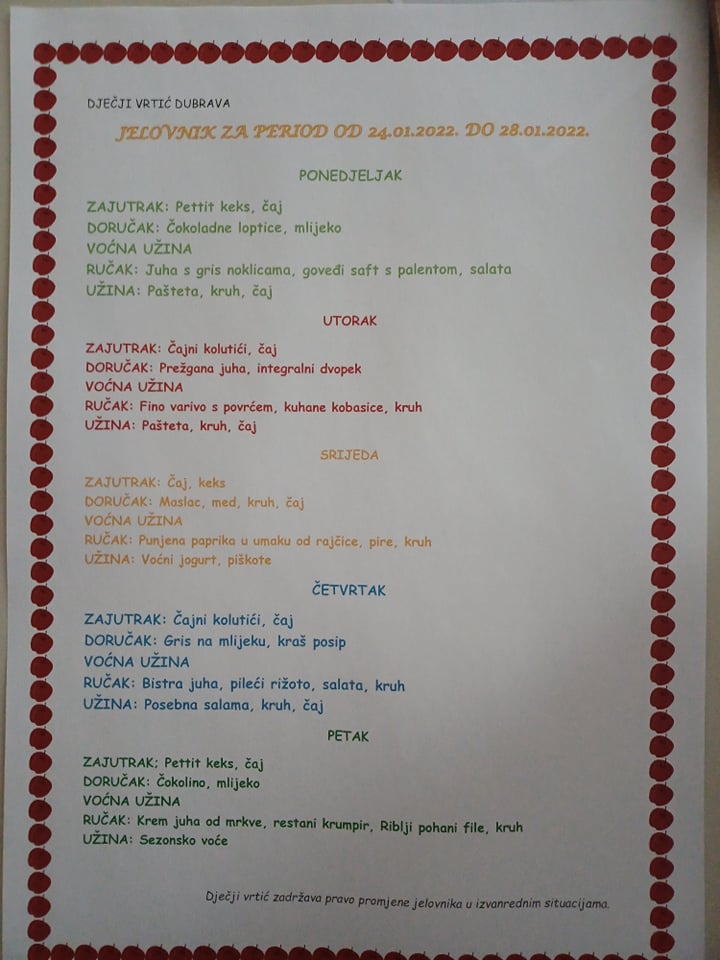 DJEČJI VRTIĆ DUBRAVA
JELOVNIK ZA PERIOD OD 24.01.2022. DO 28.01.2022.
PONEDJELJAK
ZAJUTRAK: Pettit keks, čaj
DORUČAK: Čokoladne loptice, mlijeko
VOĆNA UŽINA
RUČAK: Juha s gris noklicama, goveđi saft s palentom, salata
UŽINA: Pašteta, kruh, čaj
UTORAK
ZAJUTRAK: Čajni kolutići, čaj
DORUČAK: Prežgana juha, integralni dvopek
VOĆNA UŽINA
RUČAK: Fino varivo s povrćem, kuhane kobasice, kruh
UŽINA: Pašteta, kruh, čaj
SRIJEDA
ZAJUTRAK: Čaj, keks
DORUČAK: Maslac, med, kruh, čaj
VOĆNA UŽINA
RUČAK: Punjena paprika u umaku od rajčice, pire, kruh
UŽINA: Voćni jogurt, piškote
ČETVRTAK
ZAJUTRAK: Čajni kolutići, čaj
DORUČAK: Gris na mlijeku, kraš posip
VOĆNA UŽINA
RUČAK: Bistra juha, pileći rižoto, salata, kruh
UŽINA: Posebna salama, kruh, čaj
PETAK
ZAJUTRAK; Pettit keks, čaj
DORUČAK: Čokolino, mlijeko
VOĆNA UŽINA
RUČAK: Krem juha od mrkve, restani krumpir, Riblji pohani file, kruh
UŽINA: Sezonsko voće
Dječji vrtić zadržava pravo promjene jelovnika u izvanrednim situacijama.